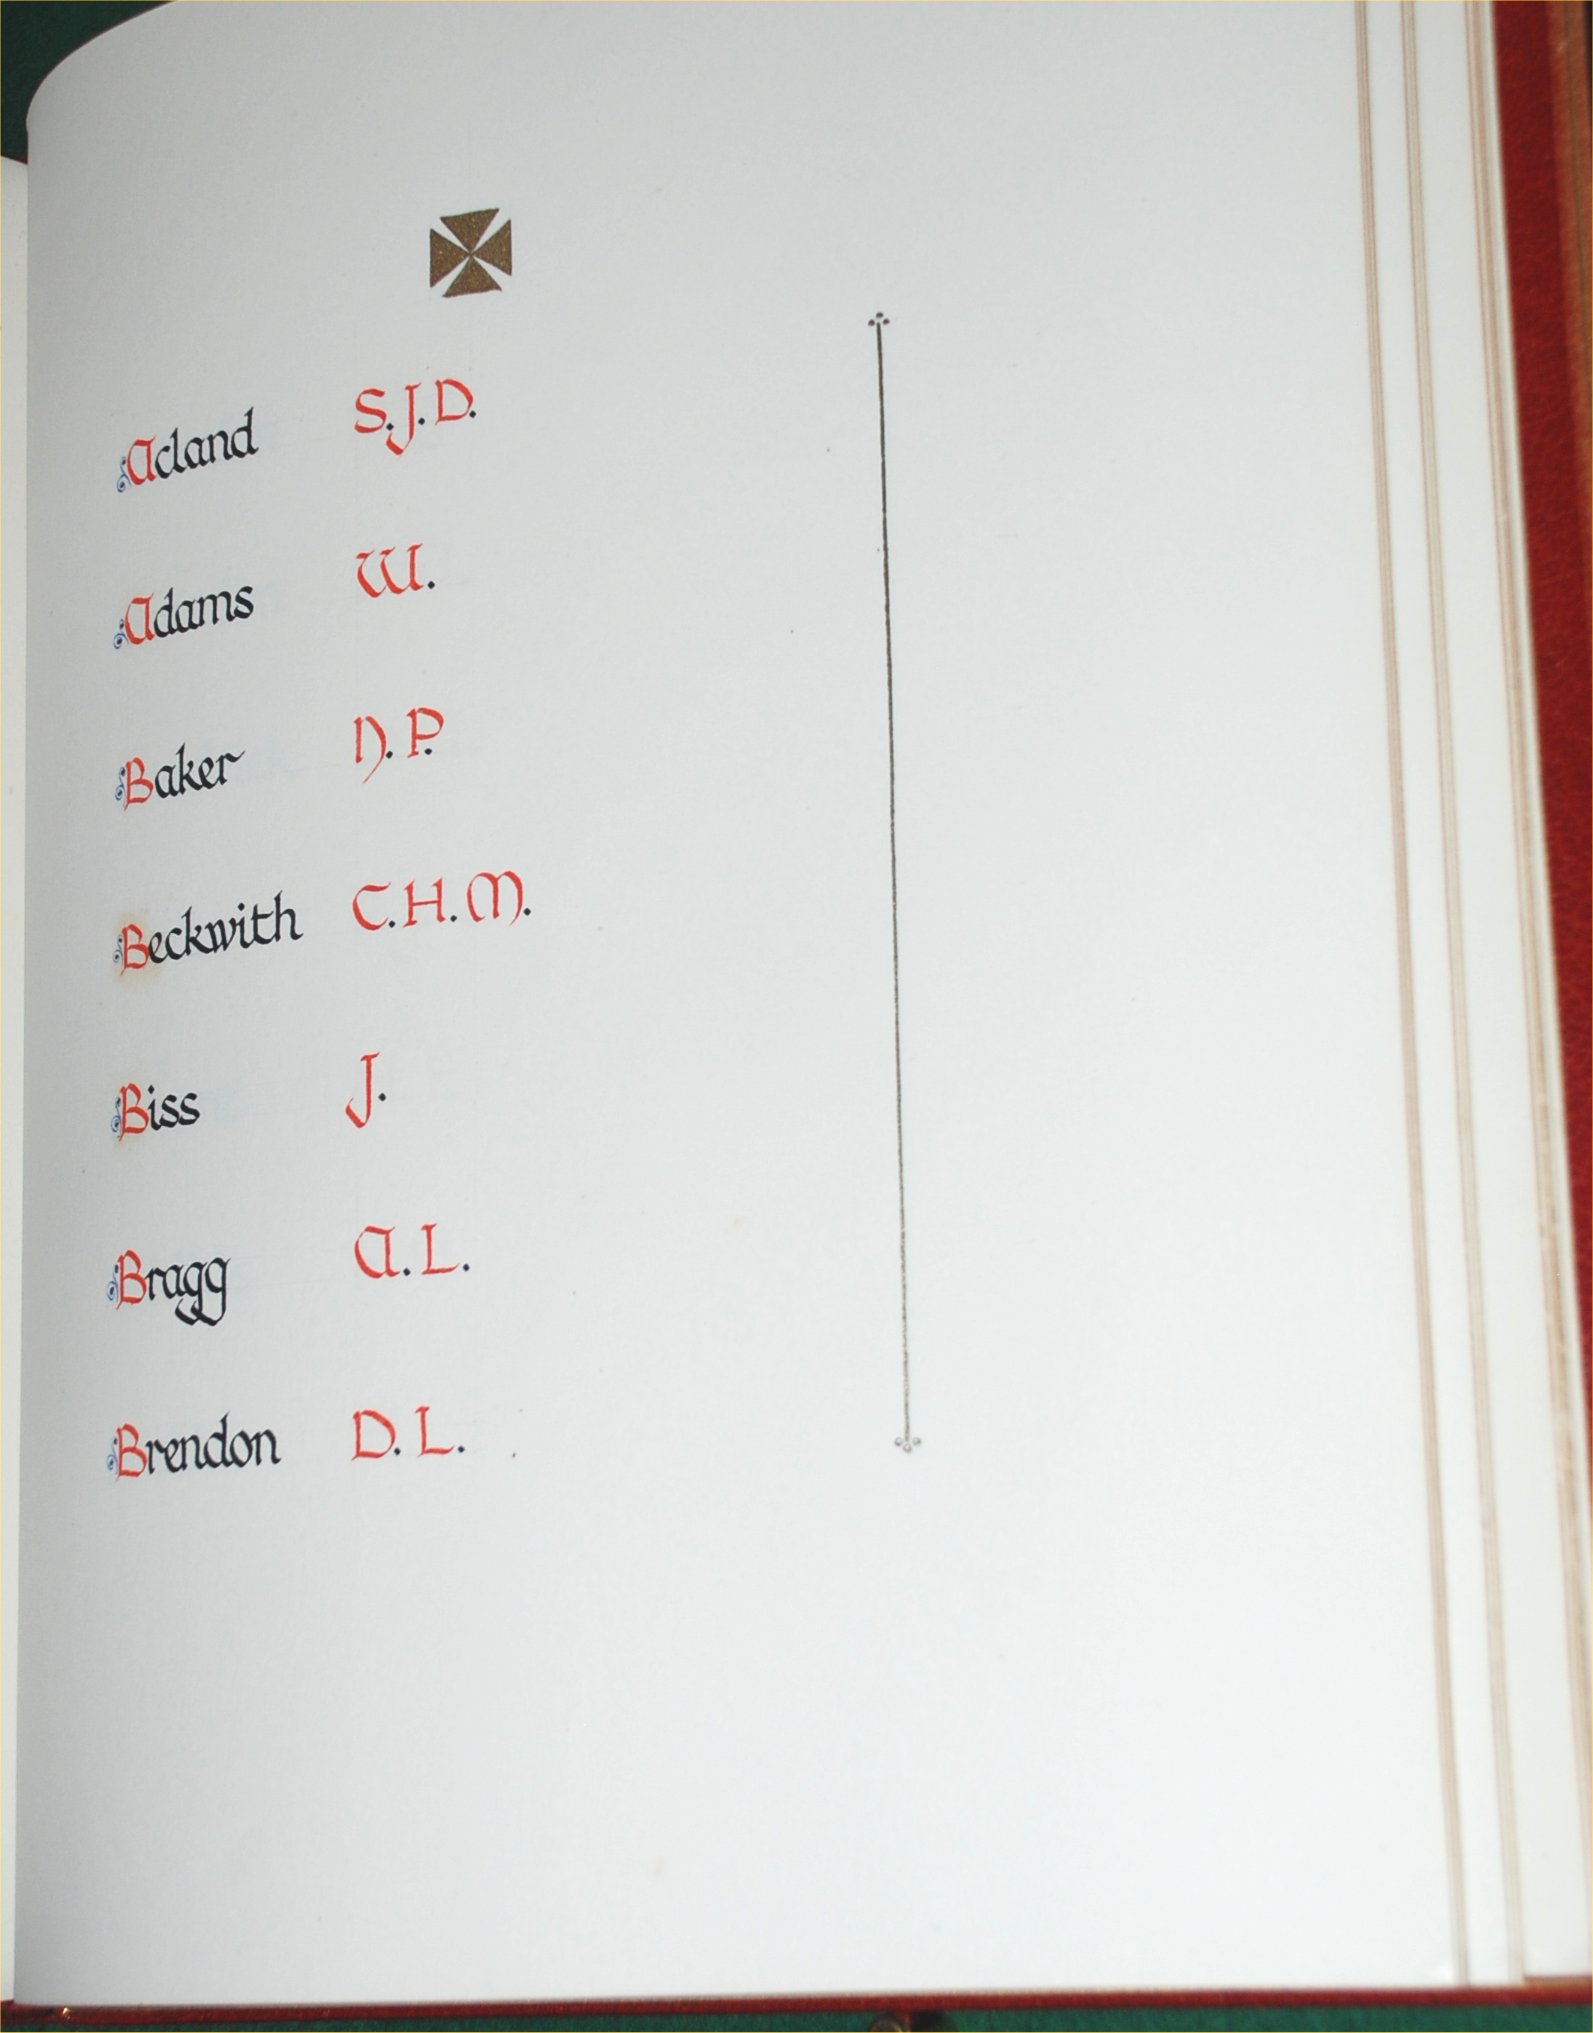 Acland S.J.D.
Adams W.
Baker N.P.
Beckwith C.H.M.
Biss J.
Bragg A.L.
Brendon D.L.